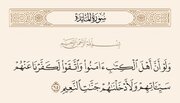 سُورَةُ المَائِدَةِ
بِسْمِ اللَّهِ الرَّحْمَٰنِ الرَّحِيمِ
وَلَوْ أَنَّ أَهْلَ الْكِتَٰبِ ءَامَنُوا۟ وَاتَّقَوْا۟ لَكَفَّرْنَا عَنْهُمْ
سَيِّـَٔاتِهِمْ وَلَأَدْخَلْنَٰهُمْ جَنَّٰتِ النَّعِيمِ ٦٥